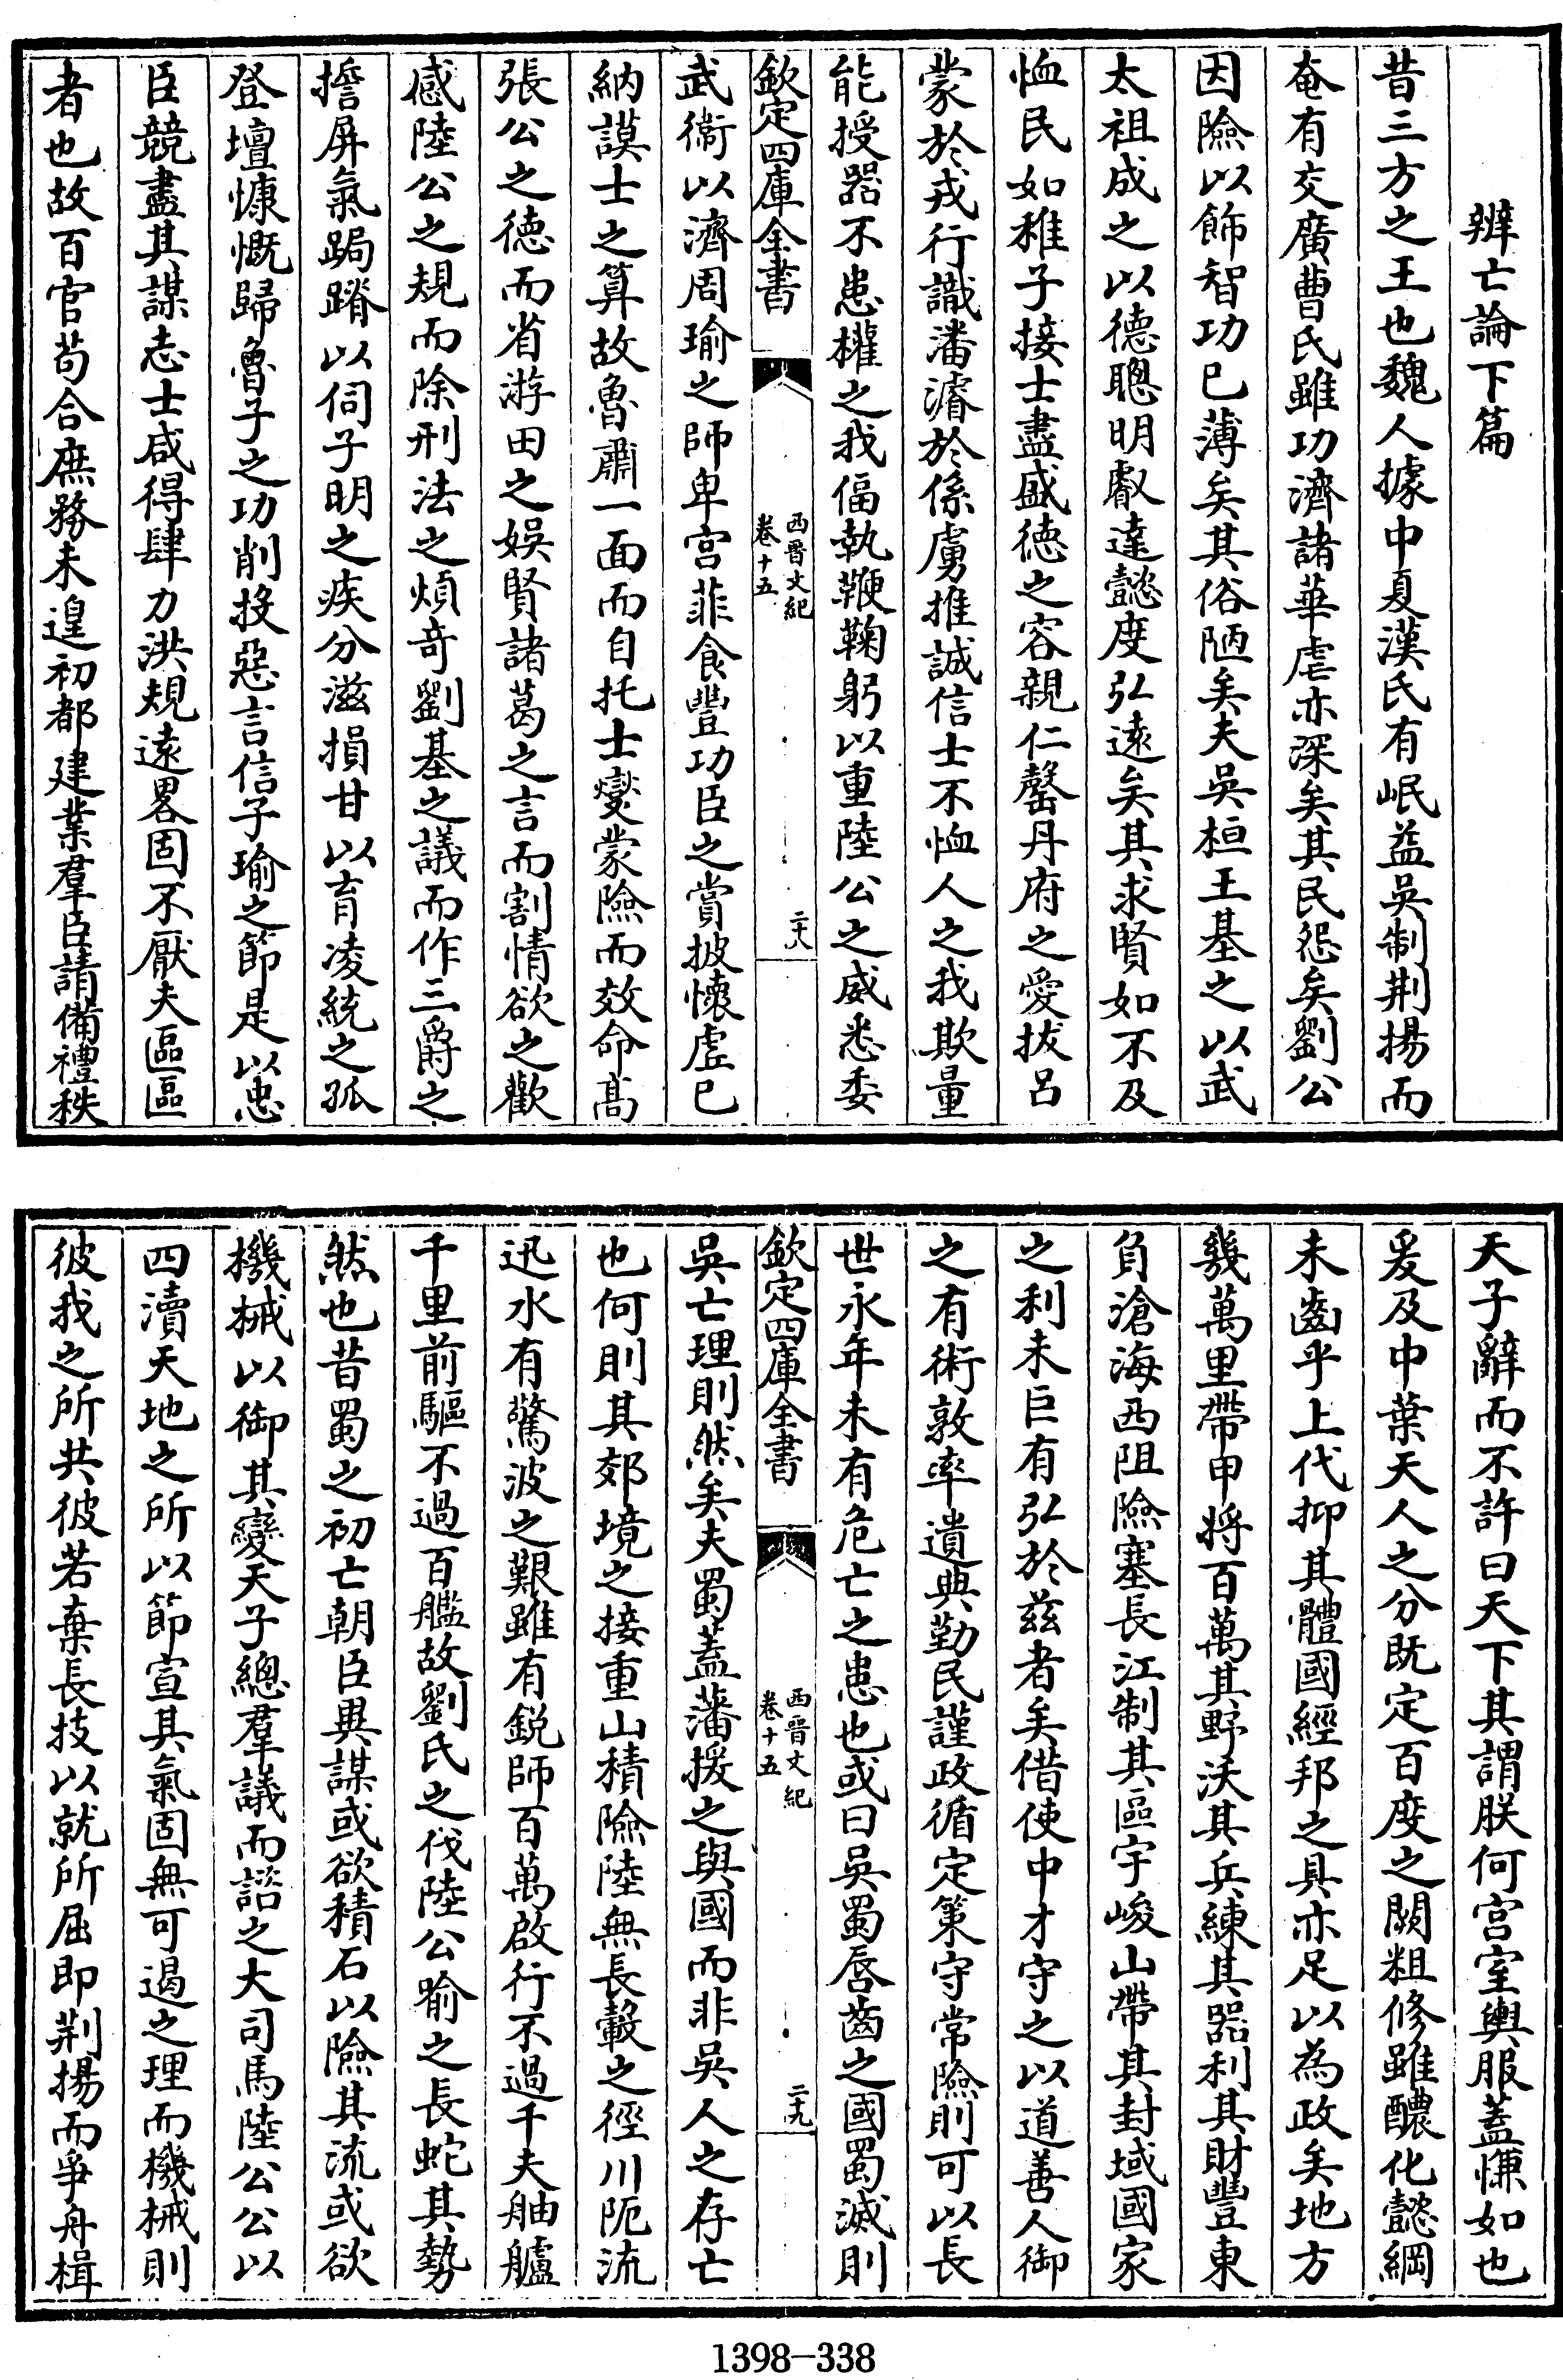 辨亡論下篇
昔三方之王也魏人據中夏漢氏有岷益吳制荆揚而
奄有交廣曹氏雖功濟諸華虐亦深矣其民怨矣劉公
因險以飾智功已薄矣其俗陋矣夫吳桓王基之以武
太祖成之以德聰明叡達懿度弘遠矣其求賢如不及
恤民如稚子接士盡盛徳之容親仁罄丹府之愛拔呂
蒙於戎行識潘濬於係虜推誠信士不恤人之我欺量
能授器不患權之我偪執鞭鞠躬以重陸公之威悉委
欽定四庫全書
西晉文紀
卷十五
二十八
武衛以濟周瑜之師卑宫菲食豐功臣之賞披懷虛已
納謨士之算故魯肅一面而自托士燮蒙險而效命髙
張公之德而省游田之娛賢諸葛之言而割情欲之歡
感陸公之規而除刑法之煩竒劉基之議而作三爵之
擔屏氣跼蹐以伺子明之疾分滋損甘以育凌統之孤
登壇慷慨歸魯子之功削投惡言信子瑜之節是以忠
臣競盡其謀志士咸得肆力洪規遠畧固不厭夫區區
者也故百官苟合庶務未遑初都建業羣臣請備禮秩
天子辭而不許曰天下其謂朕何宫室輿服葢慊如也
爰及中葉天人之分既定百度之闕粗修雖醲化懿綱
未齒乎上代抑其體國經邦之具亦足以為政矣地方
幾萬里帶甲將百萬其野沃其兵練其器利其財豐東
負滄海西阻險塞長江制其區宇峻山帶其封域國家
之利未巨有弘於兹者矣借使中才守之以道善人御
之有術敦率遺典勤民謹政循定策守常險則可以長
世永年未有危亡之患也或曰吳蜀唇齒之國蜀滅則
欽定四庫全書
西晉文紀
卷十五
二十九
吳亡理則然矣夫蜀葢藩援之與國而非吳人之存亡
也何則其郊境之接重山積險陸無長轂之徑川阨流
迅水有驚波之艱雖有鋭師百萬啟行不過千夫舳艫
千里前驅不過百艦故劉氏之伐陸公喻之長蛇其勢
然也昔蜀之初亡朝臣異謀或欲積石以險其流或欲
機械以御其變天子總羣議而諮之大司馬陸公公以
四瀆天地之所以節宣其氣固無可遏之理而機械則
彼我之所共彼若棄長技以就所屈即荆揚而爭舟楫
1398—338